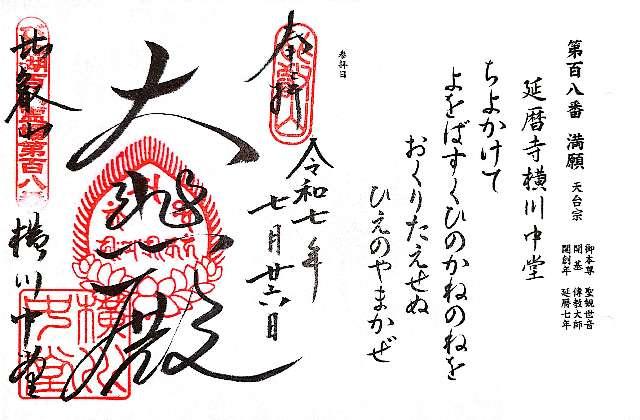 第百八番 満願 天台宗
御本尊 聖観世音
開基 傳教大師
開創年 延暦七年
延暦寺横川中堂
ちよかけて
よをばすくひのかねのねを
おくりたえせぬ
ひえのやまかぜ
参拝日
奉拝
令和七年
七月廿六日
大悲殿
横川中堂
比叡山
横川中堂